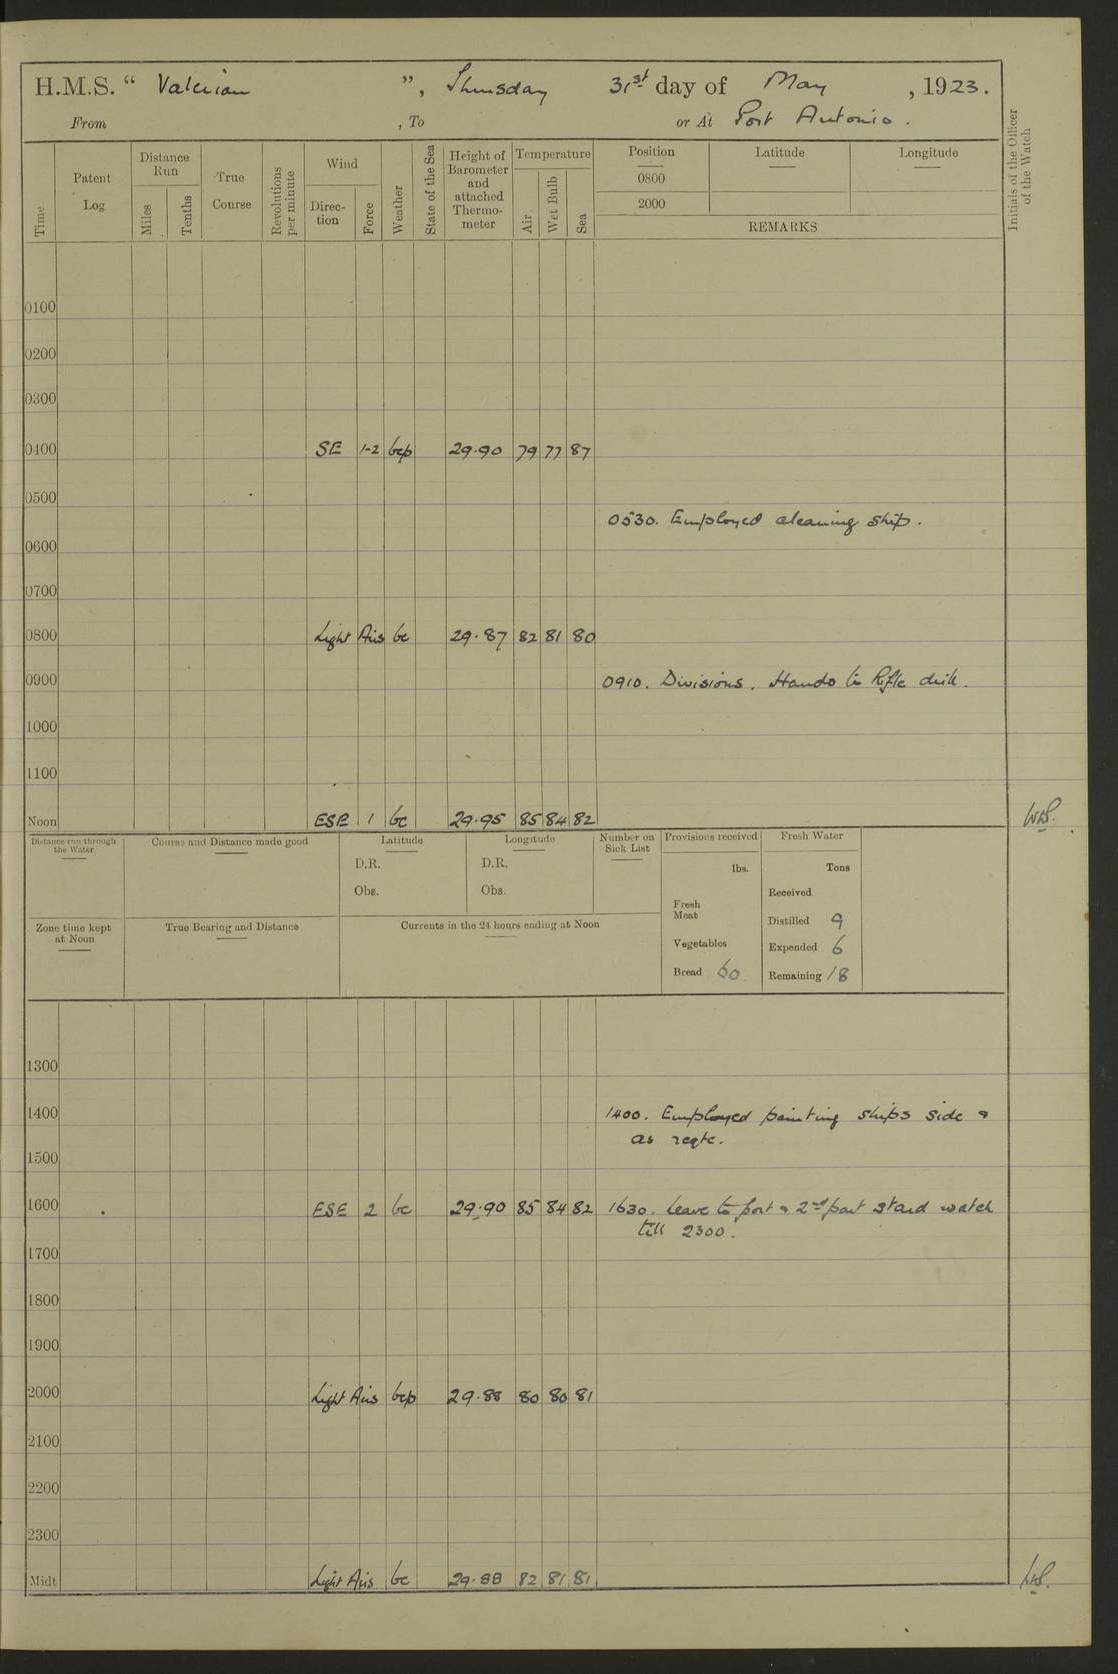 H.M.S. “ Valerian ”, Thursday 31st day of May , 1923.
From , To or At Port Antonio .
Time
Patent Log
Distance Run
Miles
Tenths
True Course
Revolutions per minute
Wind
Direc- tion
Force
Weather
State of the Sea
Height of Barometer and attached Thermo- meter
Temperature
Air
Wet Bulb
Sea
Position Latitude Longitude
0800
2000
REMARKS
Initials of the Officer of the Watch
0100
0200
0300
0400 SE 1-2 bcp 29.90 79 77 87
0500
0530. Employed cleaning ship.
0600
0700
0800 Light Airs bc 29.87 82 81 80
0900 0910. Divisions. Hands to Rifle drill.
1000
1100
Noon ESE 1 bc 29.95 85 84 82
Distance run through the Water
Course and Distance made good
Latitude
D.R.
Obs.
Longitude
D.R.
Obs.
Number on Sick List
Provisions received
lbs.
Fresh Meat
Vegetables
Bread 60
Fresh Water
Tons
Received
Distilled 9
Expended 6
Remaining 18
Zone time kept at Noon
True Bearing and Distance
Currents in the 24 hours ending at Noon
1300
1400 1400. Employed painting ships side &
as reqte.
1500
1600 ESE 2 bc 29.90 85 84 82 1630. Leave to port & 2nd part stard watch
till 2300.
1700
1800
1900
2000 Light Airs bcp 29.88 80 80 81
2100
2200
2300
Midt Light Airs bc 29.88 82 81 81